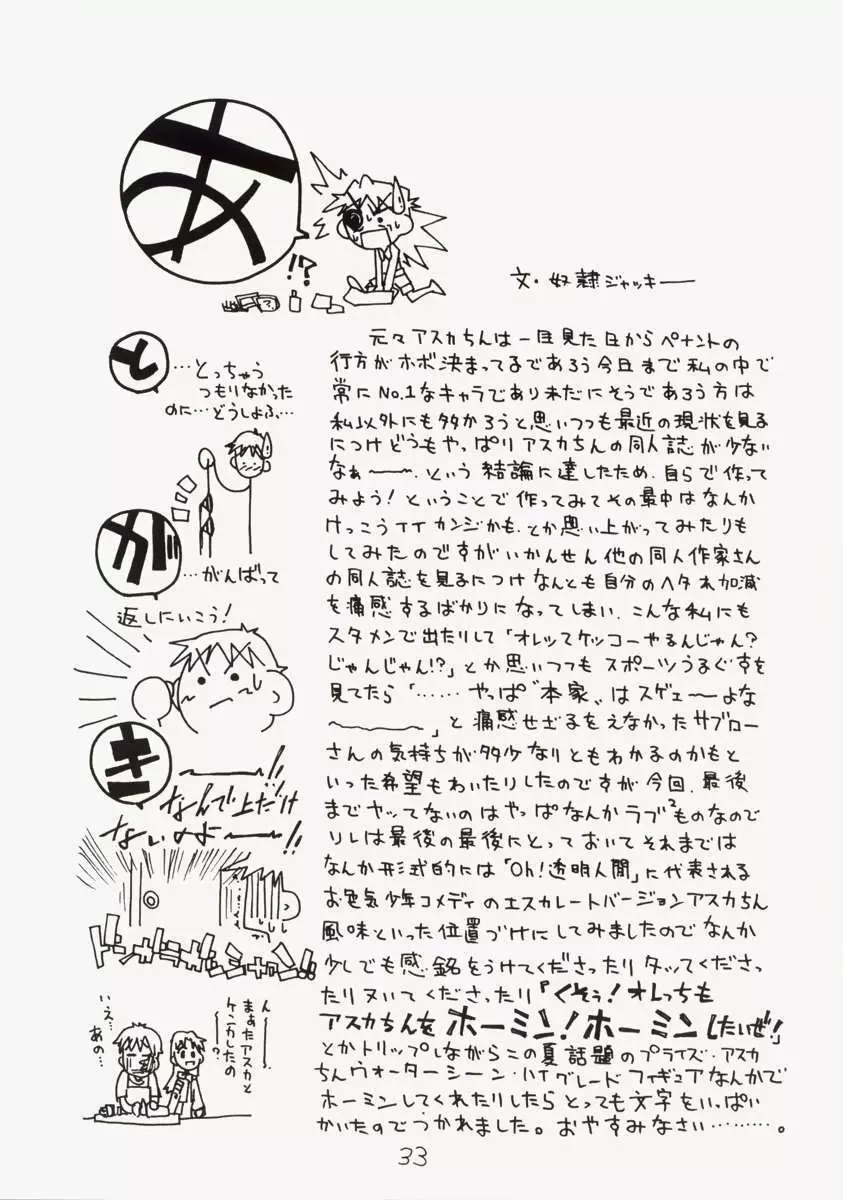 あ
!?
と
…とっちゃう
つもりなかった
のに…どうしよふ…
が
…がんばって
返しにいこう!
き
なんで上だけ
ないのよ〜〜!!
ん〜〜
まぁたアスカと
ケンカしたの
〜〜?
いえ、
あの…
文・奴隷ジャッキー
元々アスカちんは一目見た日からペナントの
行方がホボ決まってるであろう今日まで私の中で
常にNo.1なキャラであり未だにそうであろう方は
私以外にも多かろうと思いつつも最近の現状を見る
につけどうもやっぱりアスカちんの同人誌が少ない
なぁ〜〜、という結論に達したため、自らで作って
みよう!ということで作ってみてその最中はなんか
けっこうイイカンジかも、とか思い上がってみたりも
してみたのですがいかんせん他の同人作家さん
の同人誌を見るにつけなんとも自分のヘタれ加減
を痛感するばかりになってしまい、こんな私にも
スタメンで出たりして「オレッてケッコーやるんじゃん?
じゃんじゃん!?」とか思いつつもスポーツうるぐすを
見てたら「……やっぱ〝本家〟はスゲェ〜よな
〜〜〜〜」と痛感せざるをえなかったサブロー
さんの気持ちが多少なりともわかるのかもと
いった希望もわいたりしたのですが今回、最後
までヤッてないのはやっぱなんかラブ²ものなので
ソレは最後の最後にとっておいてそれまでは
なんか形式的には「Oh!透明人間」に代表される
お色気少年コメディのエスカレートバージョンアスカちん
風味といった位置づけにしてみましたのでなんか
少しでも感銘をうけてくださったりタッてくださっ
たりヌいてくださったり『くそぅ!オレっちも
アスカちんをホーミン!ホーミンしたいぜ!』
とかトリップしながらこの夏話題のプライズ・アスカ
ちんウォーターシーン・ハイグレードフィギュアなんかで
ホーミンしてくれたりしたらとっても文字をいっぱい
かいたのでつかれました。おやすみなさい………。
33